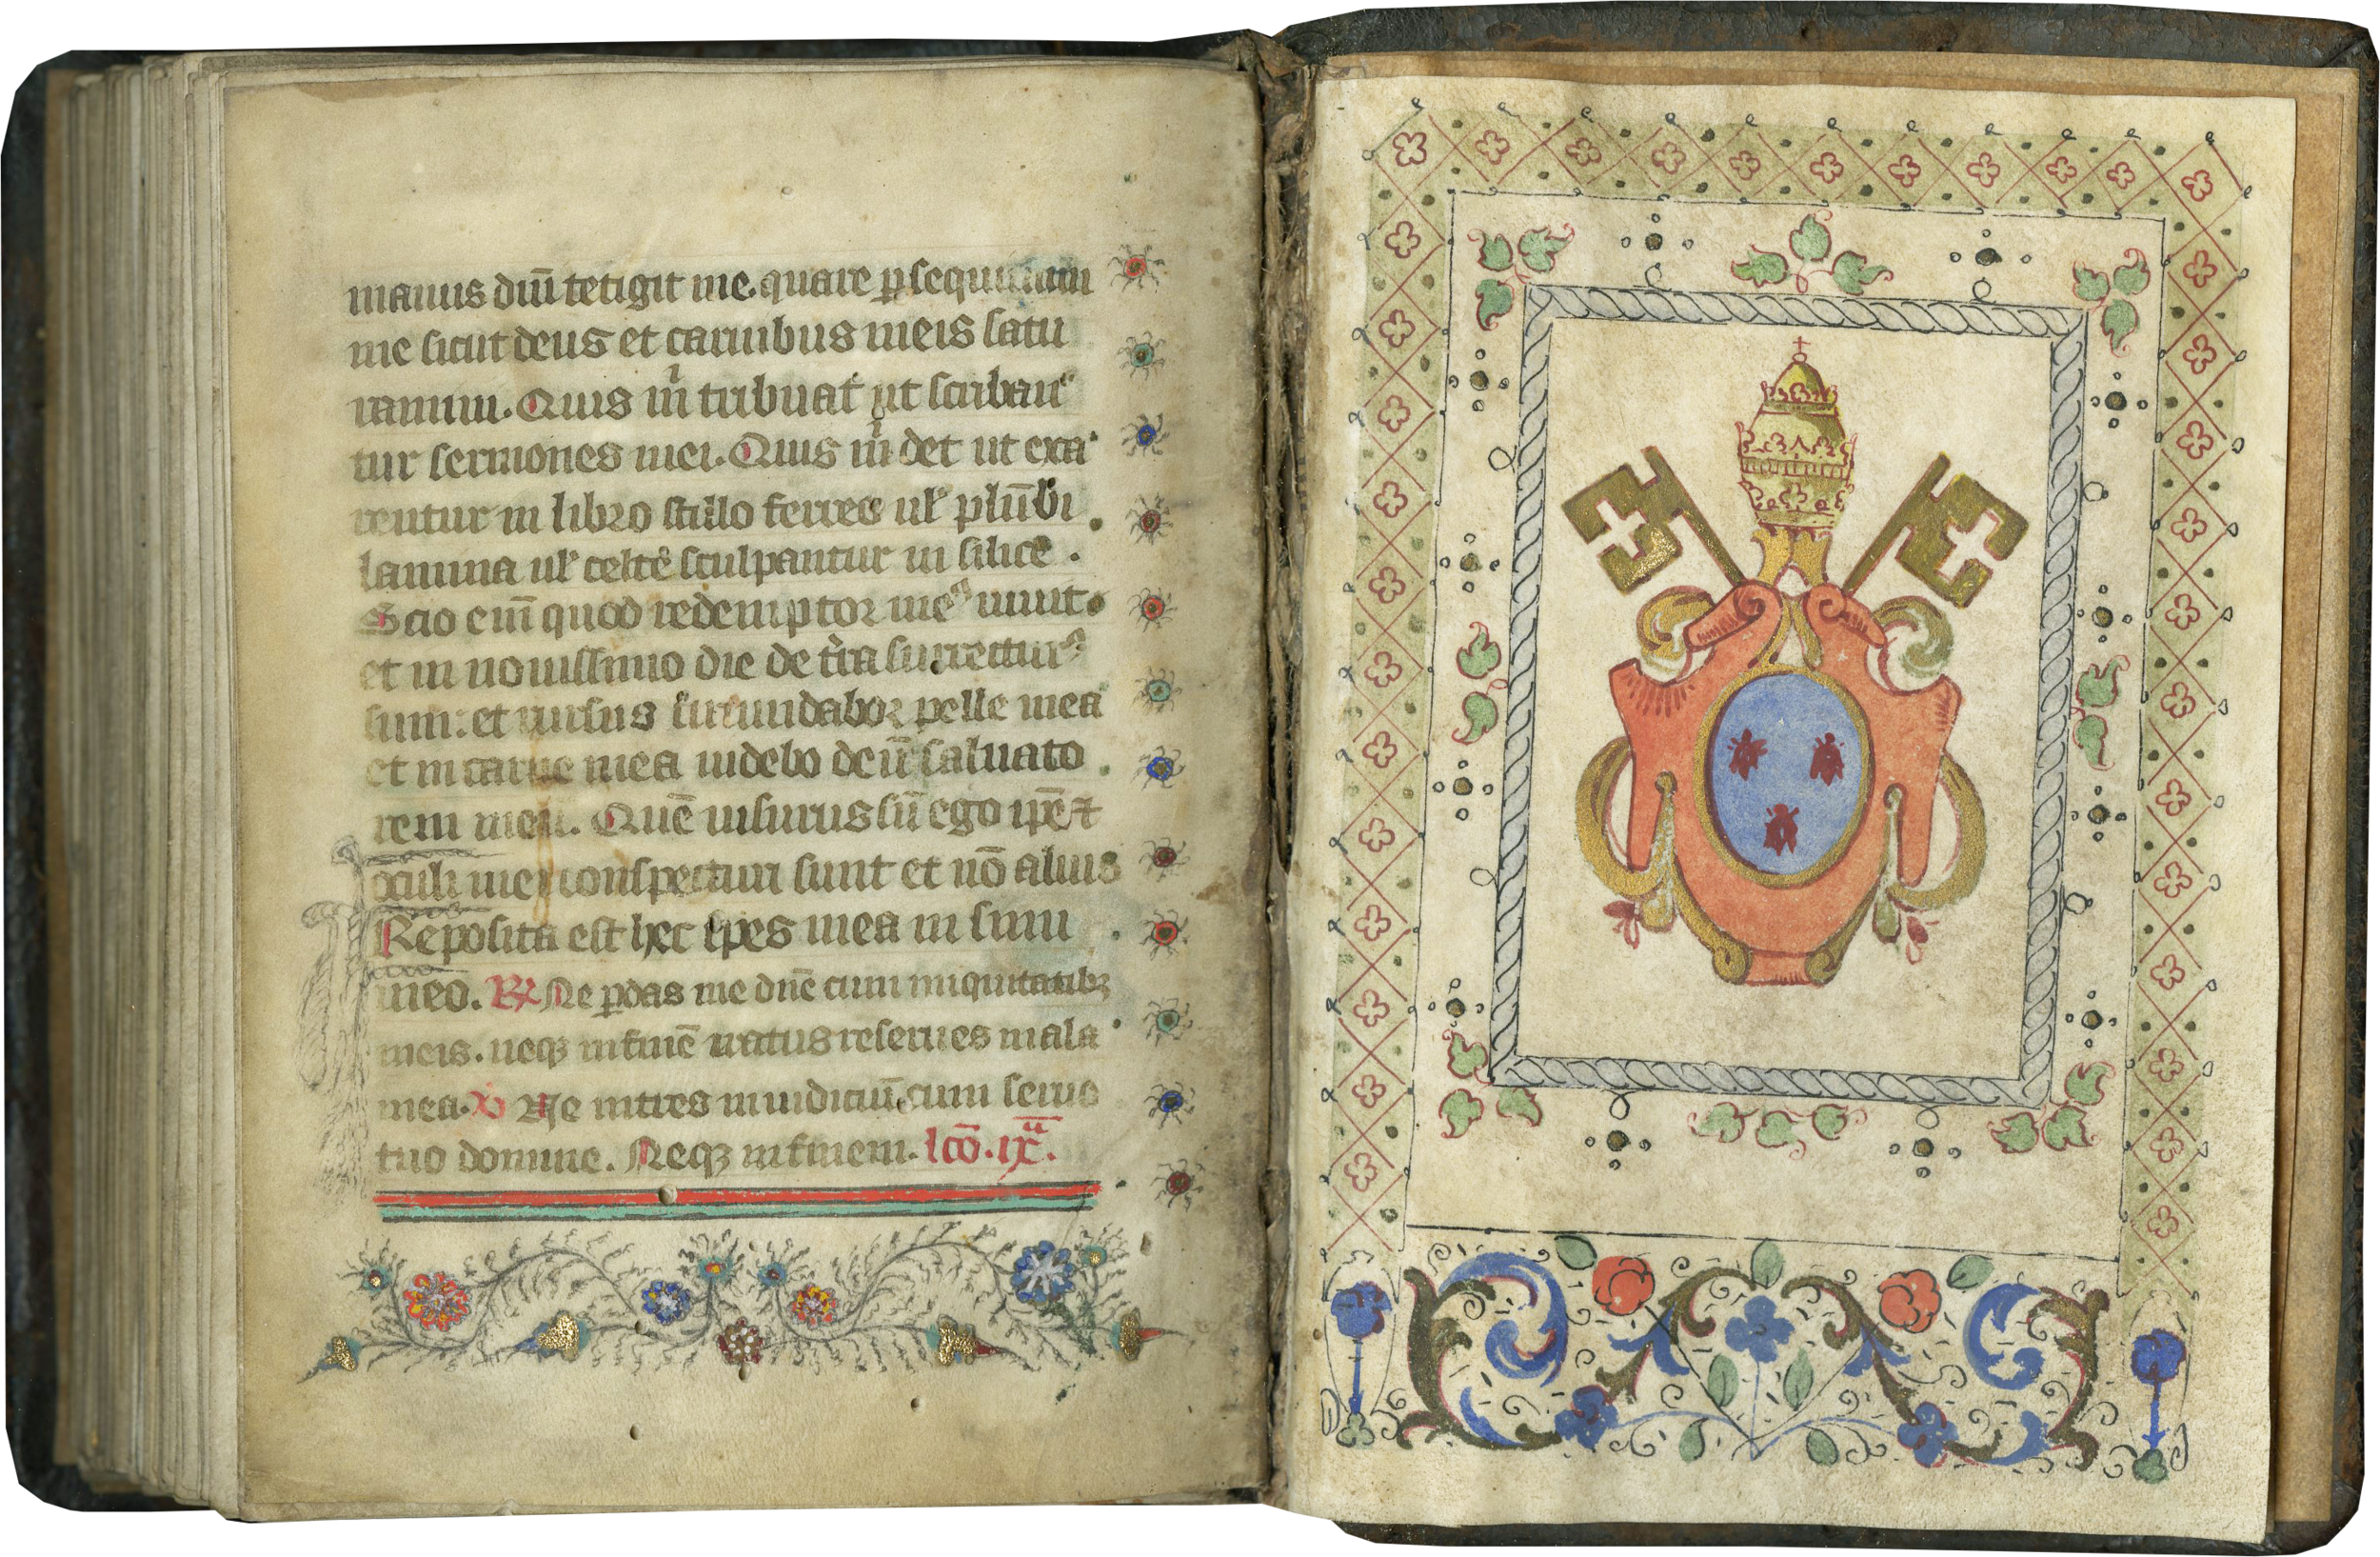 manus dnī tetigit me. quare ꝑsequimini
me sicut deus et carnibus meis satu
ramini. Quis m̄ tribuat ut scriban
tur sermones mei. Quis m̄ det ut exa
rentur in libro stillo ferreo ul̛ plūbi
lamina ul̛ celte sculpantur in silice.
Scio eni̅ quod redemptor meꝰ uiuit.
et in nouissimo die de tr̄ra surrecturꝰ
sum: et rursus circundabor pelle mea
et in carne mea uidebo deū saluato
rem meū. Quē uisurus sū ego ip̄e ⁊
oculi mei conspecturi sunt et nō alius
Reposita est hec spes mea in sinu
meo. ℞ Ne ꝑdas me dn̄e cum iniquitatibꝫ
meis. neqꝫ infinē iratus reserues mala
mea. ℣ Ne intres in iudiciū cum seruo
tuo domine. Neqꝫ infinem. lcō. ix̄ª.